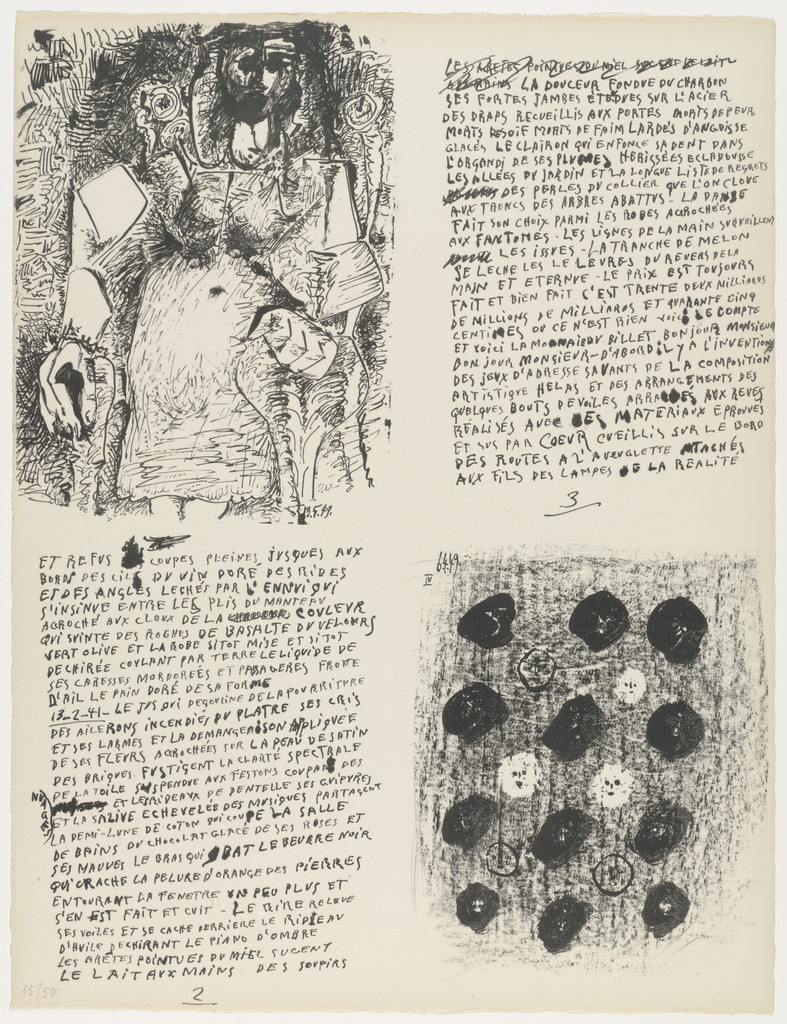 19.4.49.
LES ARÊTES POINTUES DU MIEL SUCENT LE LAIT
LA DOUCEUR FONDUE DU CHARBON
SES FORTES JAMBES ÉTENDUES SUR L'ACIER
DES DRAPS RECUEILLIS AUX PORTES MORTS DE PEUR
MORTS DE SOIF MORTS DE FAIM LARDÉS D'ANGOISSE
GLACÉS LE CLAIRON QUI ENFONCE SA DENT DANS
L'ORGANDI DE SES PLUMES HÉRISSÉES ECLABOUSSE
LES ALLÉES DU JARDIN ET LA LONGUE LISTE DE REGRETS
DES PERLES DU COLLIER QUE L'ON CLOUE
AUX TRONCS DES ARBRES ABATTUS - LA DANSE
FAIT SON CHOIX PARMI LES ROBES ACROCHÉES
AUX FANTOMES - LES LIGNES DE LA MAIN SURVEILLENT
LES ISSUES - LA TRANCHE DE MELON
SE LECHE LES LEVRES DU REVERS DE LA
MAIN ET ETERNUE - LE PRIX EST TOUJOURS
FAIT ET BIEN FAIT C'EST TRENTE DEUX MILLIARDS
DE MILLIONS DE MILLIARDS ET QUARANTE CINQ
CENTIMES OU CE N'EST RIEN VOICI LE COMPTE
ET VOICI LA MONNAIE DU BILLET BONJOUR MONSIEUR
BONJOUR MONSIEUR - D'ABORD IL Y A L'INVENTION
DES JEUX D'ADRESSE SAVANTS DE LA COMPOSITION
ARTISTIQUE HELAS ET DES ARRANGEMENTS DES
QUELQUES BOUTS DE VOILES ARRACHÉS AUX REVES
RÉALISÉS AVEC DES MATERIAUX ÉPROUVÉS
ET SUS PAR COEUR CUEILLIS SUR LE BORD
DES ROUTES A L'AVEUGLETTE ATACHÉS
AUX FILS DES LAMPES DE LA RÉALITÉ
3
ET REFUS COUPES PLEINES JUSQUES AUX
BORDS DES CILS DU VIN DORÉ DES RIDES
ET DES ANGLES LECHÉS PAR L'ENNUI QUI
S'INSINUE ENTRE LES PLIS DU MANTEAU
ACROCHÉ AUX CLOUX DE LA COULEUR
QUI SUINTE DES ROCHES DE BASALTE DU VELOURS
VERT OLIVE ET LA ROBE SITOT MISE ET SITOT
DECHIRÉE COULANT PAR TERRE LE LIQUIDE DE
SES CARESSES MORDORÉES ET PASSAGERES FROTTE
D'AIL LE PAIN DORÉ DE SA FORME
13-2-41 - LE JUS QUI DEGOULINE DE LA POURRITURE
DES AILERONS INCENDIÉS DU PLATRE SES CRIS
ET SES LARMES ET LA DEMANGEAISON APLIQUÉE
DE SES FLEURS ACROCHÉES SUR LA PEAU DE SATIN
DES BRIQUES FUSTIGENT LA CLARTÉ SPECTRALE
DE LA TOILE SUSPENDUE AUX FESTONS COUPANT DES
NUAGES ET LES RIDEAUX DE DENTELLE SES GUIPURES
ET LA SALIVE ECHEVELÉE DES MUSIQUES PARTAGENT
LA DEMI-LUNE DE COTON QUI COUPE LA SALLE
DE BAINS DU CHOCOLAT GLACÉ DE SES ROSES ET
SES MAUVES LE BRAS QUI ABAT LE BEURRE NOIR
QU'CRACHE LA PELURE D'ORANGE DES PIERRES
ENTOURANT LA FENETRE UN PEU PLUS ET
S'EN EST FAIT ET CUIT - LE RIRE RELEVE
SES VOILES ET SE CACHE DERRIERE LE RIDEAU
D'HUILE DECHIRANT LE PIANO D'OMBRE
LES ARÊTES POINTUES DU MIEL SUCENT
LE LAIT AUX MAINS DES SOUPIRS
2
IV
15/50